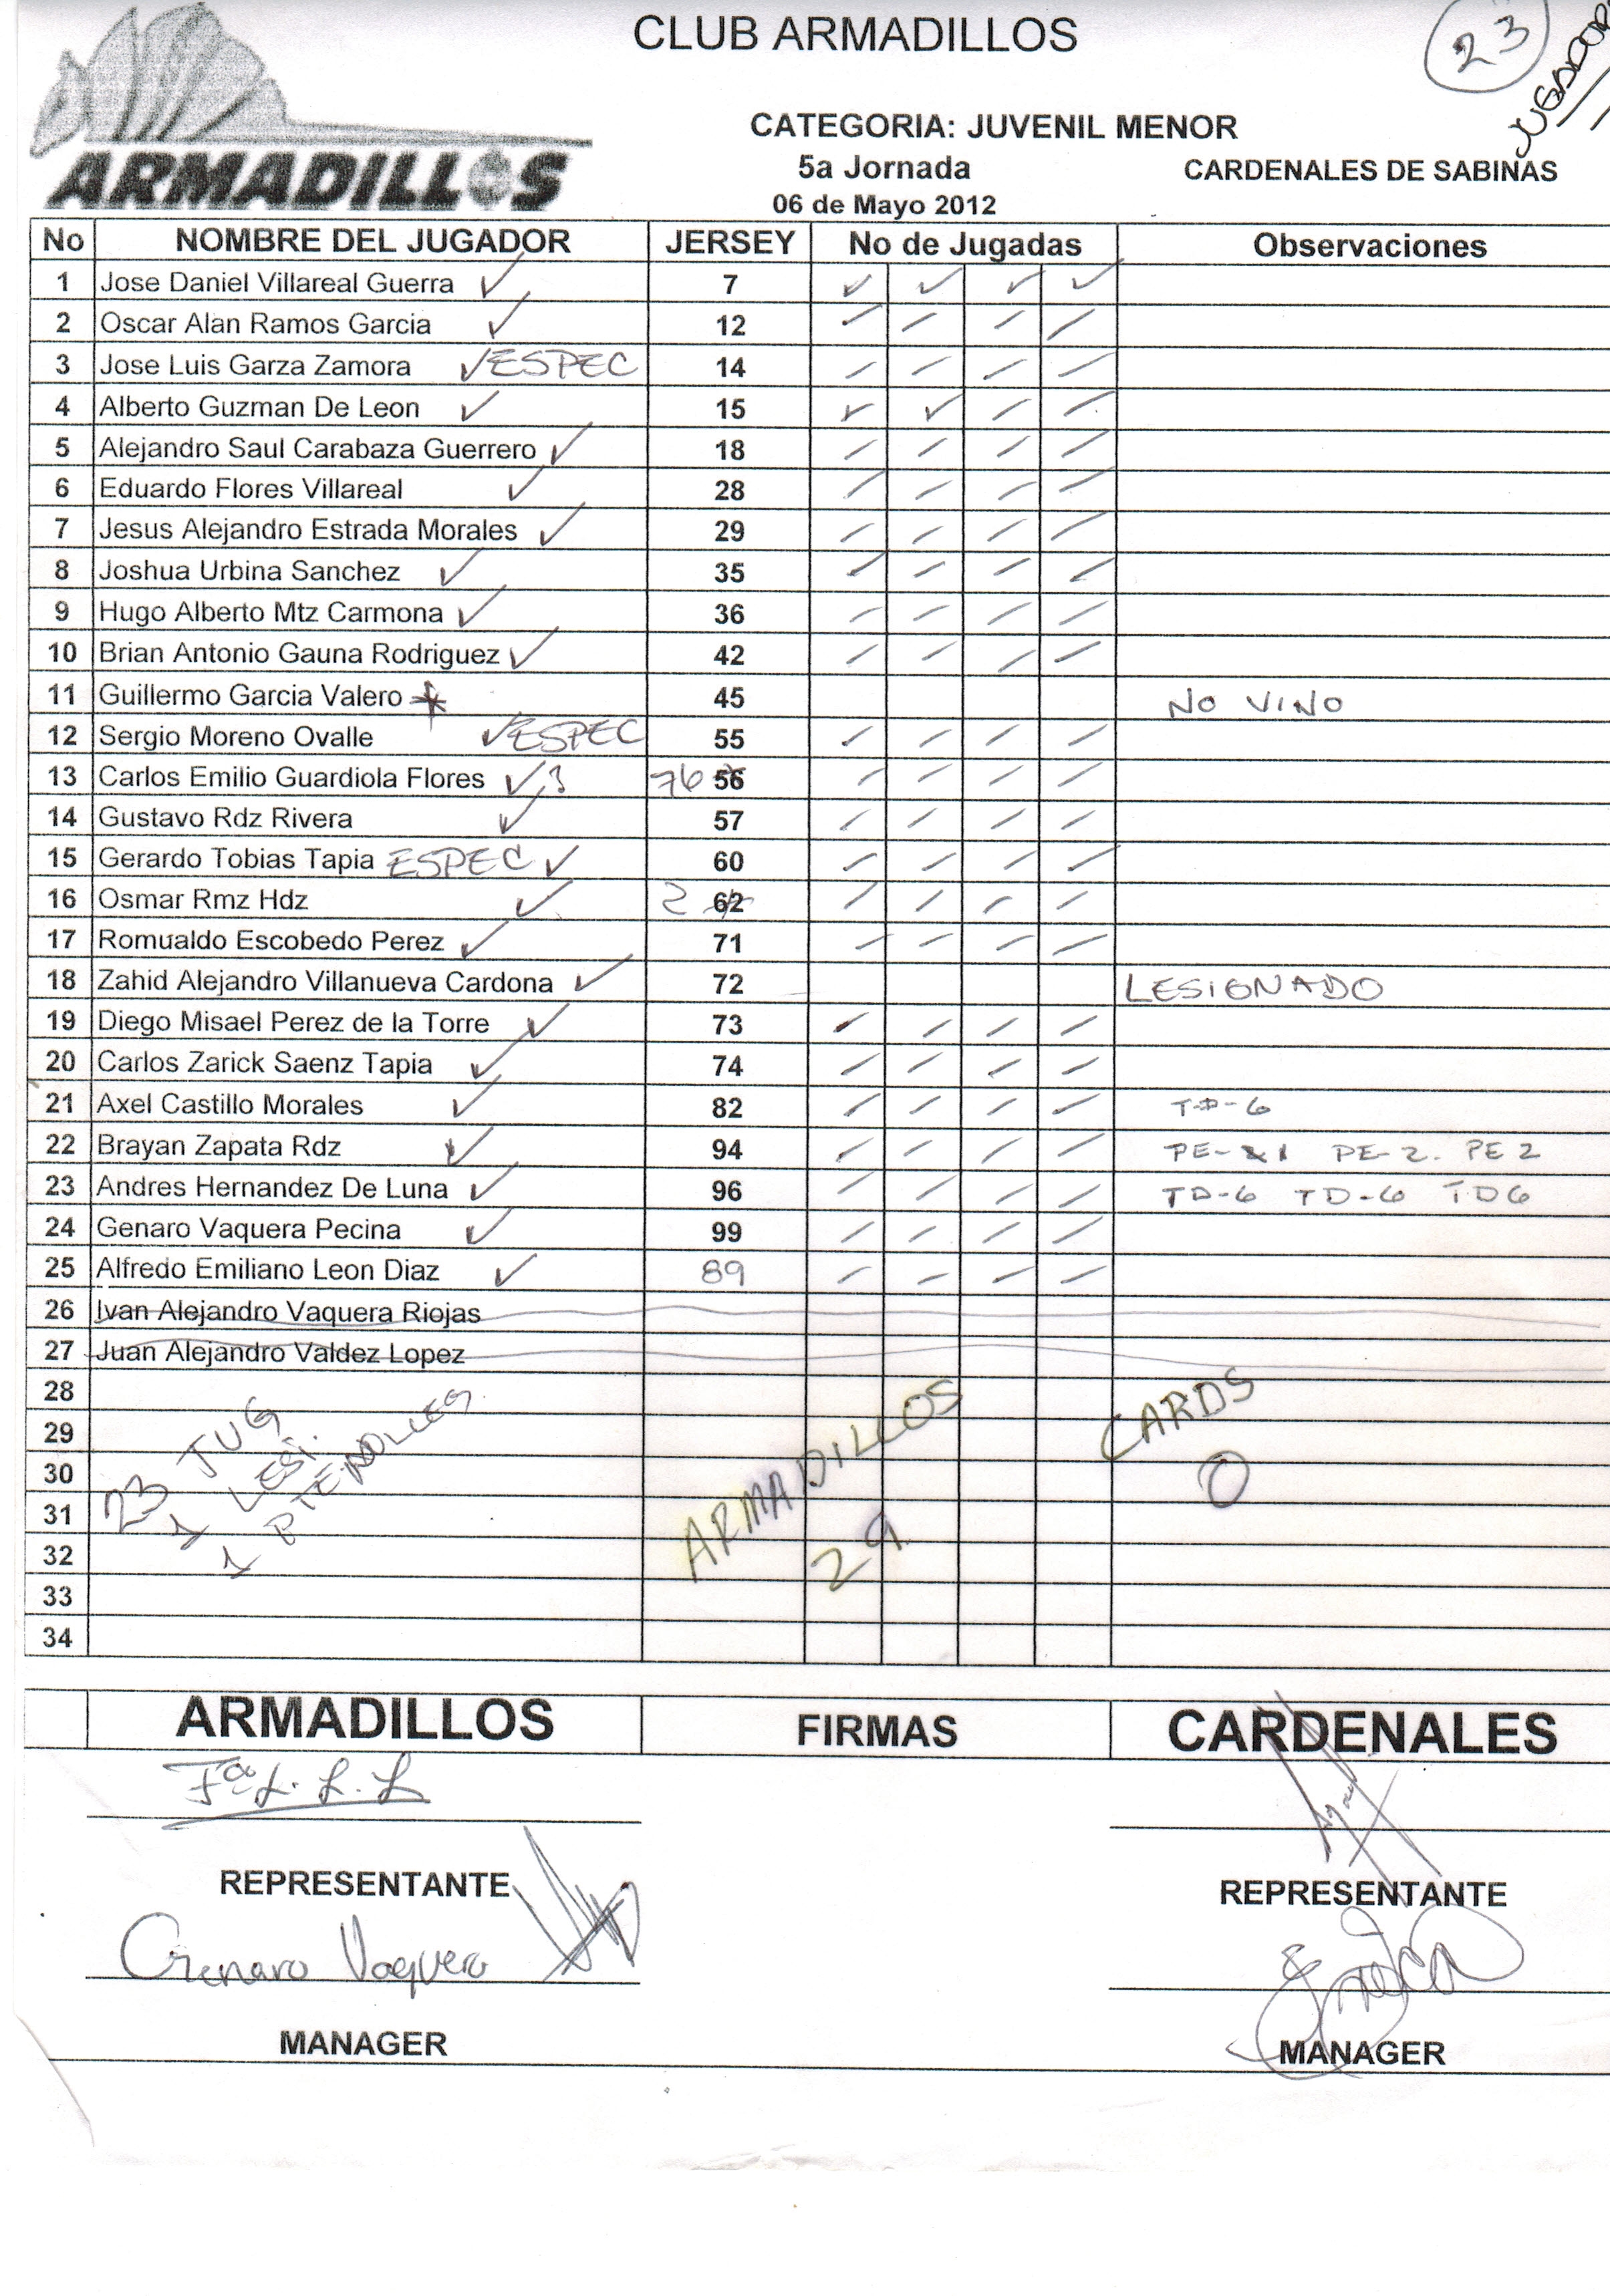 CLUB ARMADILLOS
23
JUGADORES
ARMADILLOS
CATEGORIA: JUVENIL MENOR
5a Jornada
CARDENALES DE SABINAS
06 de Mayo 2012
No NOMBRE DEL JUGADOR JERSEY No de Jugadas Observaciones
1 Jose Daniel Villareal Guerra ✓ 7 ✓ ✓ ✓ ✓
2 Oscar Alan Ramos Garcia ✓ 12 / / / /
3 Jose Luis Garza Zamora ✓ ESPEC 14 / / / /
4 Alberto Guzman De Leon ✓ 15 ✓ ✓ / /
5 Alejandro Saul Carabaza Guerrero ✓ 18 / / / /
6 Eduardo Flores Villareal ✓ 28 / / / /
7 Jesus Alejandro Estrada Morales ✓ 29 / / / /
8 Joshua Urbina Sanchez ✓ 35 / / / /
9 Hugo Alberto Mtz Carmona ✓ 36 / / / /
10 Brian Antonio Gauna Rodriguez ✓ 42 / / / /
11 Guillermo Garcia Valero 45 NO VINO
12 Sergio Moreno Ovalle ✓ ESPEC 55 / / / /
13 Carlos Emilio Guardiola Flores ✓ 76 56 / / / /
14 Gustavo Rdz Rivera ✓ 57 / / / /
15 Gerardo Tobias Tapia ESPEC ✓ 60 / / / /
16 Osmar Rmz Hdz ✓ 2 62 / / / /
17 Romualdo Escobedo Perez ✓ 71 / / / /
18 Zahid Alejandro Villanueva Cardona ✓ 72 LESIONADO
19 Diego Misael Perez de la Torre ✓ 73 / / / /
20 Carlos Zarick Saenz Tapia ✓ 74 / / / /
21 Axel Castillo Morales ✓ 82 / / / / TD-6
22 Brayan Zapata Rdz ✓ 94 / / / / PE-1 PE-2. PE 2
23 Andres Hernandez De Luna ✓ 96 / / / / TD-6 TD-6 TD6
24 Genaro Vaquera Pecina ✓ 99 / / / /
25 Alfredo Emiliano Leon Diaz ✓ 89 / / / /
26 Ivan Alejandro Vaquera Riojas
27 Juan Alejandro Valdez Lopez
28
29
30
31
32
33
34
23 JUG
1 LESI.
1
ARMADILLOS
29
CARDS
0
ARMADILLOS FIRMAS CARDENALES
REPRESENTANTE REPRESENTANTE
Genaro Vaquera
MANAGER MANAGER